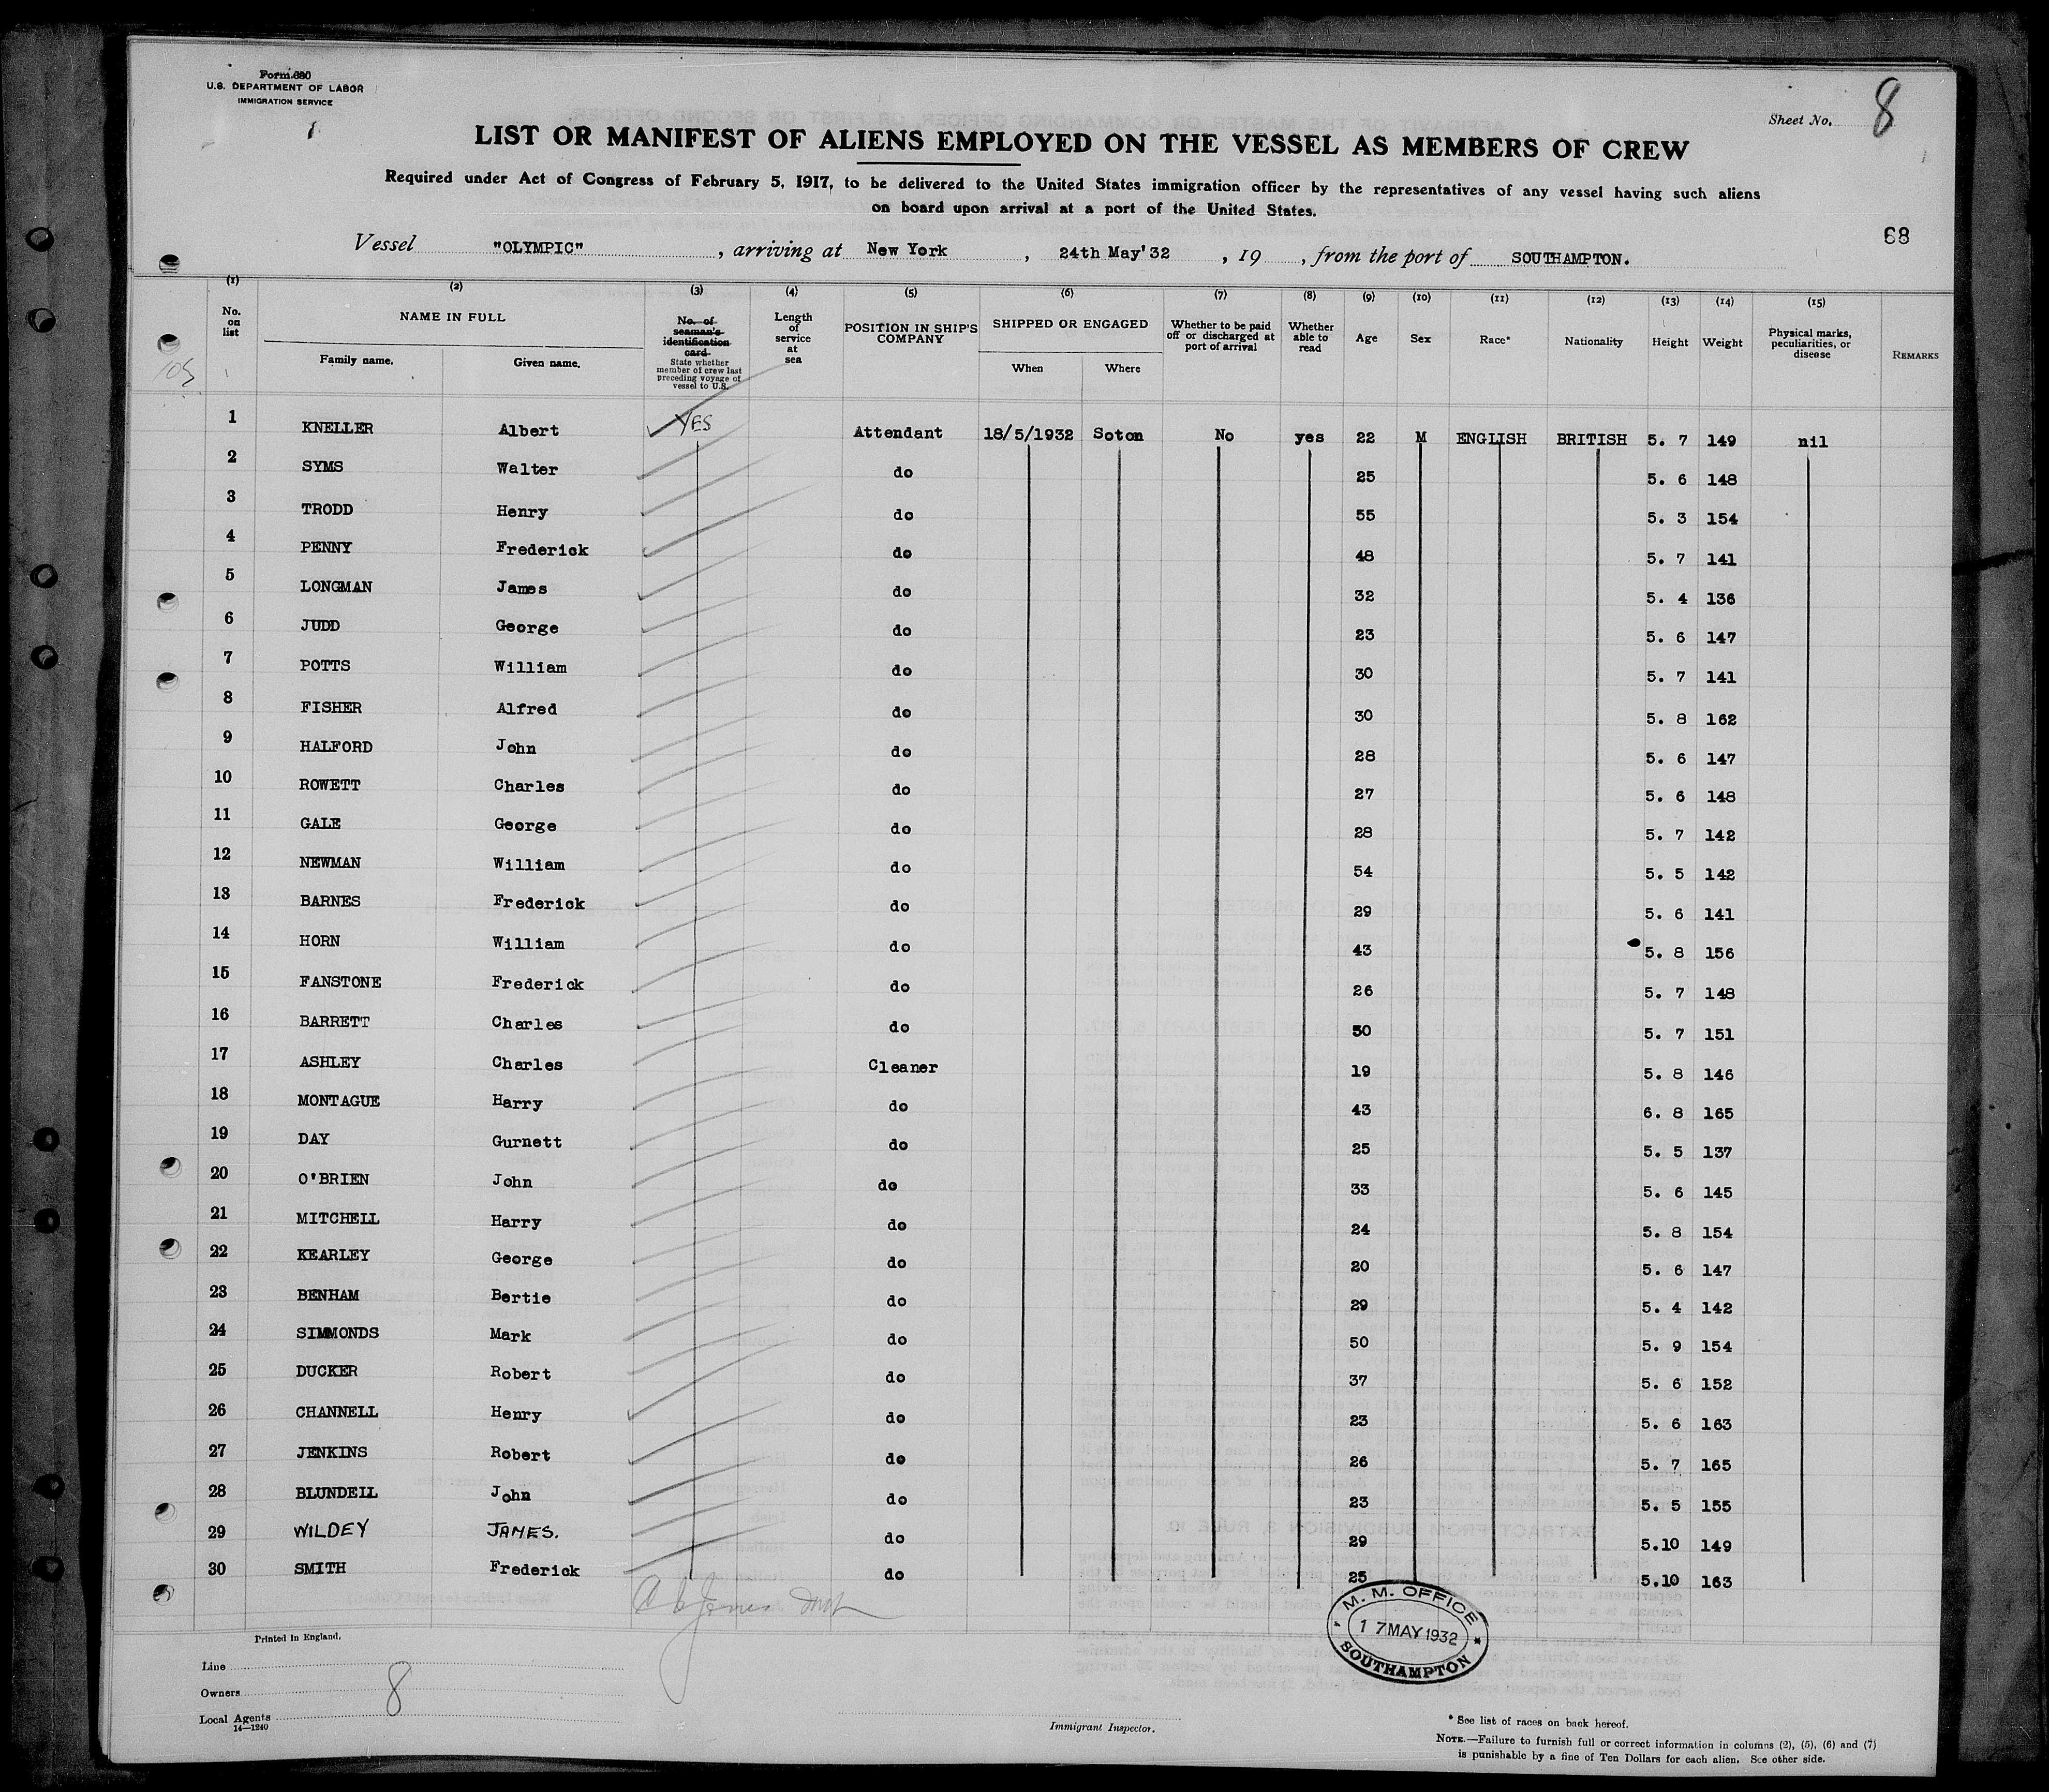 Form 680
U.S. DEPARTMENT OF LABOR
IMMIGRATION SERVICE
Sheet No. 8
LIST OR MANIFEST OF ALIENS EMPLOYED ON THE VESSEL AS MEMBERS OF CREW
Required under Act of Congress of February 5, 1917, to be delivered to the United States immigration officer by the representatives of any vessel having such aliens
on board upon arrival at a port of the United States.
68
Vessel "OLYMPIC", arriving at New York, 24th May'32, 19 , from the port of SOUTHAMPTON.
(1) (2) (3) (4) (5) (6) (7) (8) (9) (10) (11) (12) (13) (14) (15)
No. on list NAME IN FULL Family name. Given name. No. of seaman's identification card State whether member of crew last preceding voyage of vessel to U.S. Length of service at sea POSITION IN SHIP'S COMPANY SHIPPED OR ENGAGED When Where Whether to be paid off or discharged at port of arrival Whether able to read Age Sex Race* Nationality Height Weight Physical marks, peculiarities, or disease REMARKS
105
1 KNELLER Albert YES Attendant 18/5/1932 Soton No yes 22 M ENGLISH BRITISH 5. 7 149 nil
2 SYMS Walter do 25 5. 6 148
3 TRODD Henry do 55 5. 3 154
4 PENNY Frederick do 48 5. 7 141
5 LONGMAN James do 32 5. 4 136
6 JUDD George do 23 5. 6 147
7 POTTS William do 30 5. 7 141
8 FISHER Alfred do 30 5. 8 162
9 HALFORD John do 28 5. 6 147
10 ROWETT Charles do 27 5. 6 148
11 GALE George do 28 5. 7 142
12 NEWMAN William do 54 5. 5 142
13 BARNES Frederick do 29 5. 6 141
14 HORN William do 43 5. 8 156
15 FANSTONE Frederick do 26 5. 7 148
16 BARRETT Charles do 50 5. 7 151
17 ASHLEY Charles Cleaner 19 5. 8 146
18 MONTAGUE Harry do 43 6. 8 165
19 DAY Gurnett do 25 5. 5 137
20 O'BRIEN John do 33 5. 6 145
21 MITCHELL Harry do 24 5. 8 154
22 KEARLEY George do 20 5. 6 147
23 BENHAM Bertie do 29 5. 4 142
24 SIMMONDS Mark do 50 5. 9 154
25 DUCKER Robert do 37 5. 6 152
26 CHANNELL Henry do 23 5. 6 163
27 JENKINS Robert do 26 5. 7 165
28 BLUNDELL John do 23 5. 5 155
29 WILDEY JAMES. do 29 5.10 149
30 SMITH Frederick do 25 5.10 163
M. M. OFFICE
17 MAY 1932
SOUTHAMPTON
Printed in England.
Line
Owners 8
Local Agents
14—1240
Immigrant Inspector.
* See list of races on back hereof.
NOTE.—Failure to furnish full or correct information in columns (2), (5), (6) and (7)
is punishable by a fine of Ten Dollars for each alien. See other side.